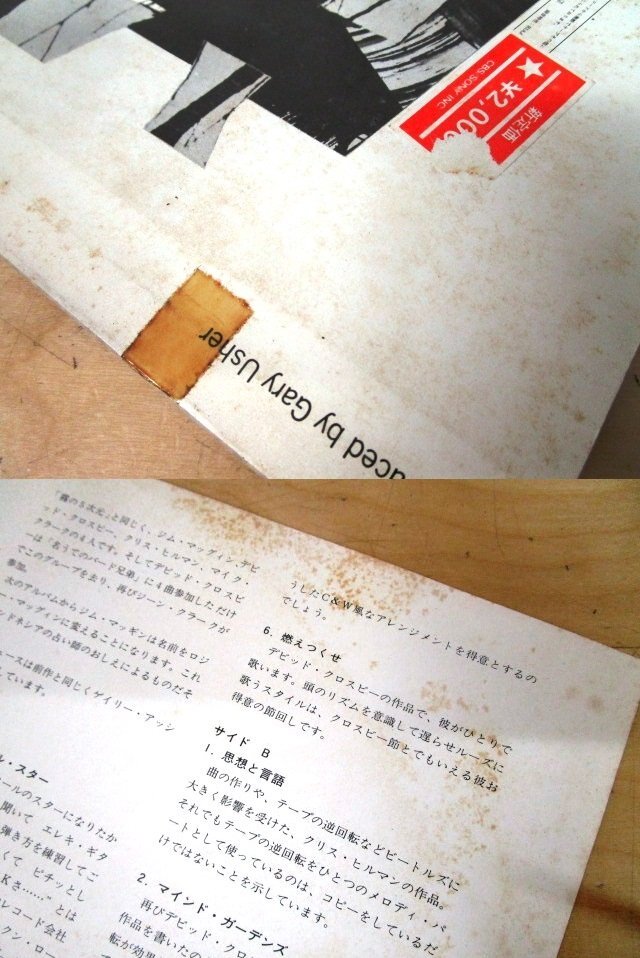 CBS・SONY INC.
¥2,000
新定価
uced by Gary Usher
「霧の5次元」と同じく、ジム・マッグイン、デビ
ッド・クロスビー、クリス・ヒルマン、マイク・
クラークの4人です。そしてデビッド・クロスビ
ーは「名うてのバード兄弟」に4曲参加しただけ
でこのグループを去り、再びジーン・クラークが
参加。
次のアルバムからジム・マッギンは名前をロジ
ー・マッグィンに変えることになります。これ
ンドネシアの占い師のおしえによるものだそ
ースは前作と同じくゲイリー・アッシ
しています。
ル・スター
ールのスターになりたか
開いて エレキ・ギタ
弾き方を練習してご
くて ピチッとし
Kさ……”とは
レコード会社
クン・ロー
うしたC&W風なアレンジメントを得意とするの
でしょう。
6. 燃えつくせ
デビッド・クロスビーの作品で、彼がひとりで
歌います。頭のリズムを意識して遅らせルーズに
歌うスタイルは、クロスビー節とでもいえる彼お
得意の節回しです。
サイド B
1. 思想と言語
曲の作りや、テープの逆回転などビートルズに
大きく影響を受けた、クリス・ヒルマンの作品。
それでもテープの逆回転をひとつのメロディ・パ
ートとして使っているのは、コピーをしているだ
けではないことを示しています。
2. マインド・ガーデンズ
再びデビッド・クロ
作品を書いたの
転が効果